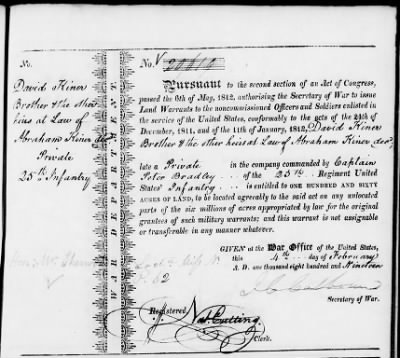 No.
David Kiner
Brother & the other
heirs at Law of
Abraham Kiner decd
Private
25th Infantry
WAR DEPARTMENT
No.
Pursuant to the second section of an Act of Congress,
passed the 6th of May, 1812, authorising the Secretary of War to issue
Land Warrants to the noncommissioned Officers and Soldiers enlisted
in the service of the United States, conformably to the acts of the 24th of
December, 1811, and of the 11th of January, 1812, David Kiner
Brother & the other heirs at Law of Abraham Kiner decd
late a Private in the company commanded by Captain
Peter Bradley of the 25th Regiment United
States' Infantry is entitled to ONE HUNDRED AND SIXTY
ACRES OF LAND, to be located agreeably to the said act on any unlocated
parts of the six millions of acres appropriated by law for the original
grantees of such military warrants; and this warrant is not assignable
or transferable in any manner whatever.
GIVEN at the War Office of the United States,
this 4th day of February
A. D. one thousand eight hundred and Nineteen
J C Calhoun
Secretary of War.
Registered
Nat. Cutting
Clerk.